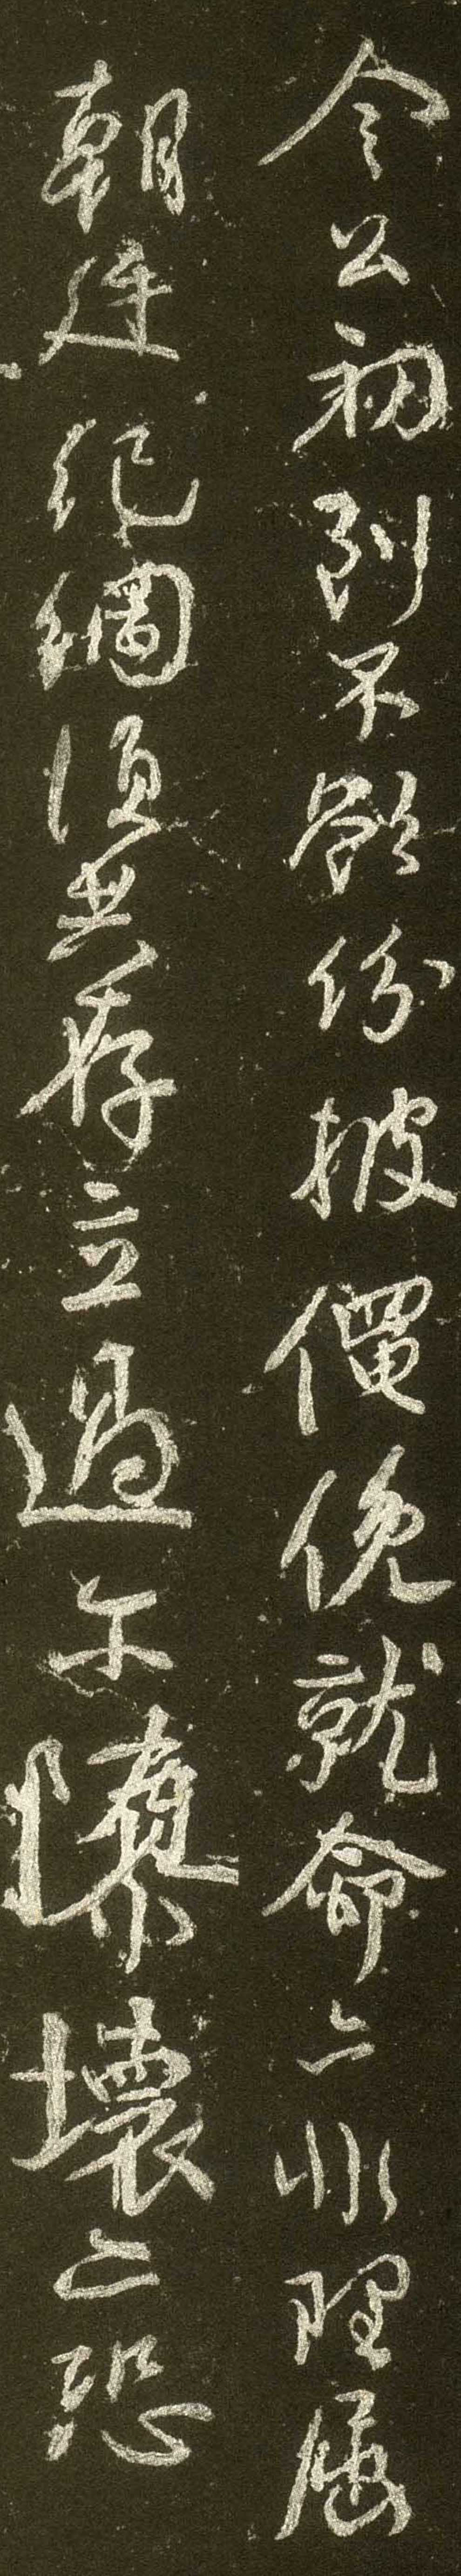 令公初到不欲份披僶俛就命亦非理屈
朝廷紀綱須共存立過尓隳壞亦恐